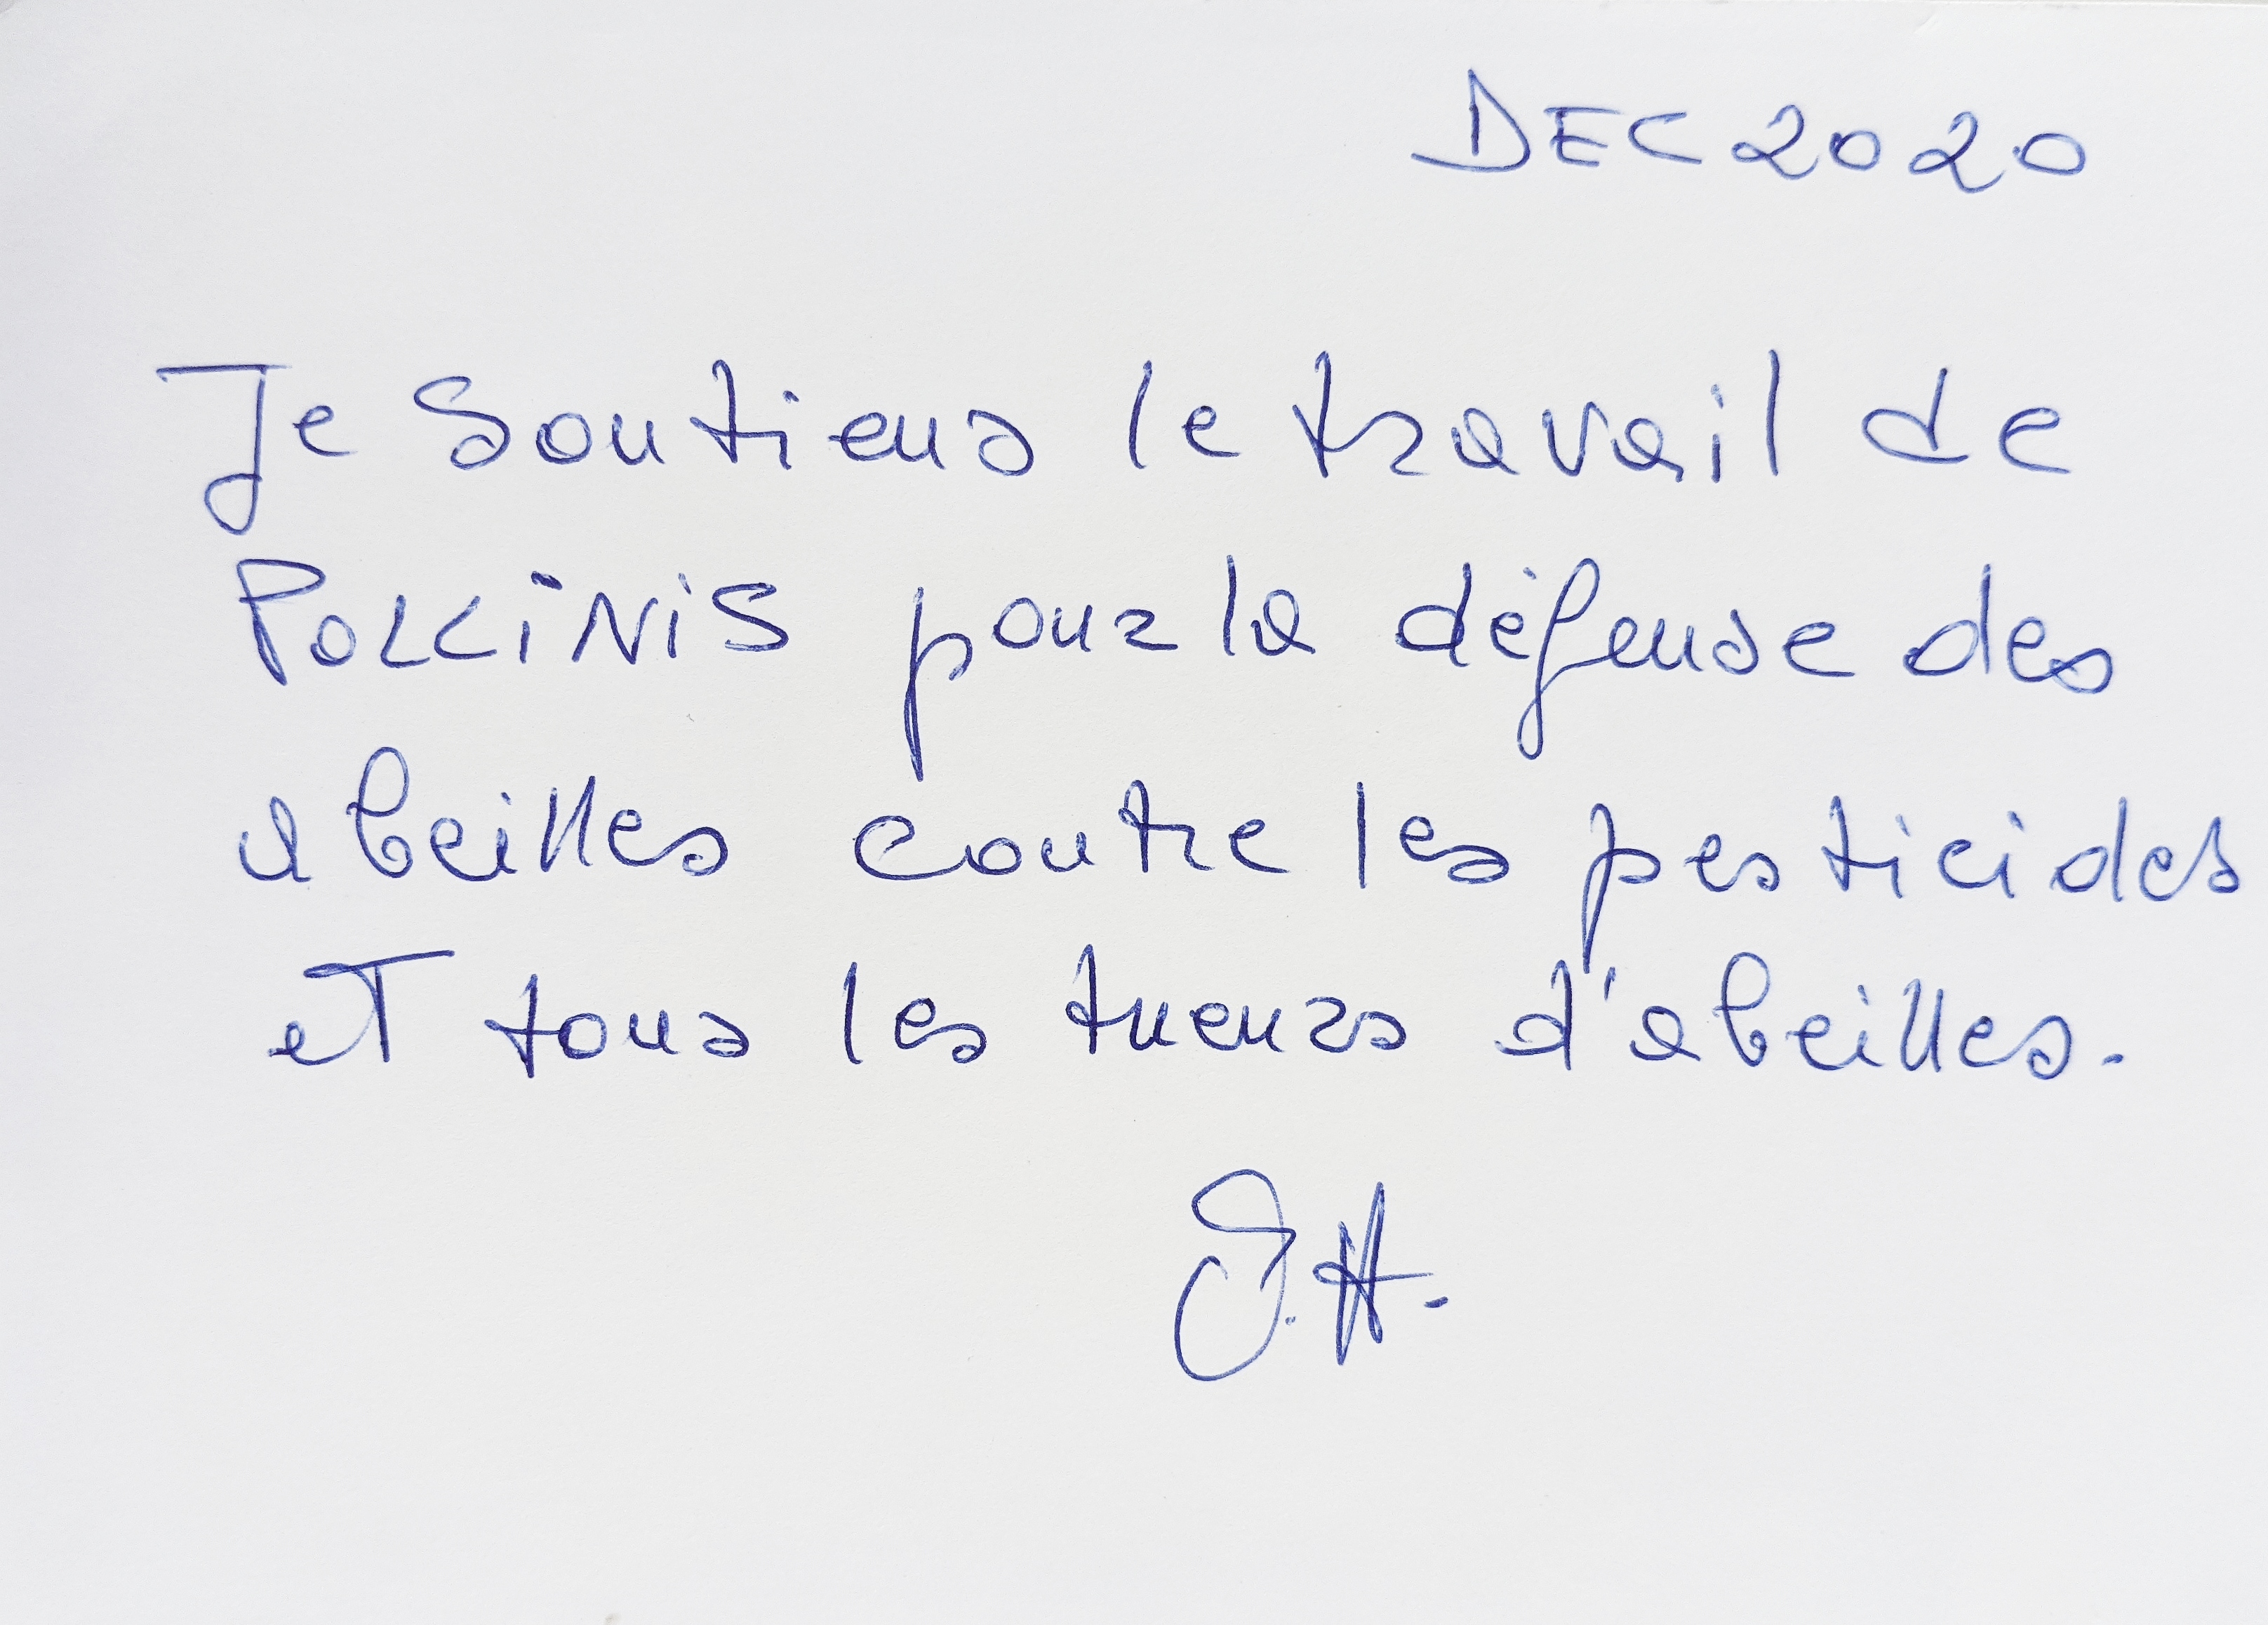 DEC 2020
Je soutiens le travail de
POLLiNiS pour la défense des
abeilles contre les pesticides
eT tous les tueurs d'abeilles.
J.H.